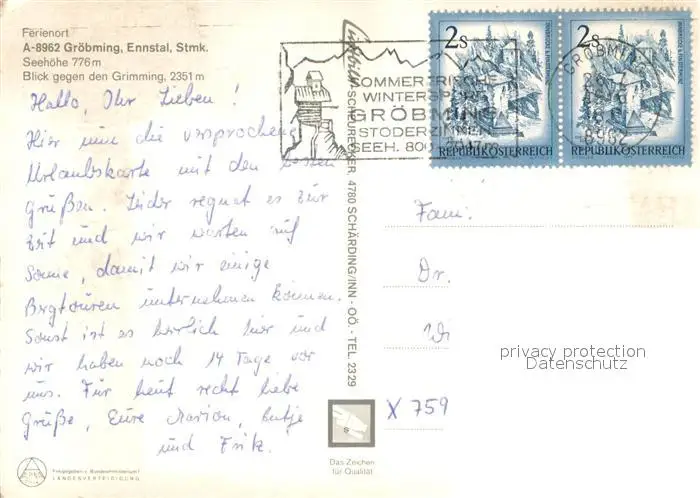 Ferienort
A-8962 Gröbming, Ennstal, Stmk.
Seehöhe 776 m
Blick gegen den Grimming, 2351 m
Hallo, Ihr Lieben!
Hier nun die versprochene
Urlaubskarte mit den besten
Grüßen. Leider regnet es zur
Zeit und wir warten auf
Sonne, damit wir einige
Bergtouren unternehmen können.
Sonst ist es herrlich hier und
wir haben noch 14 Tage vor
uns. Für heut recht liebe
Grüße, Eure Marion,
und Fritz.
Freigegeben v. Bundesministerium f.
LANDESVERTEIDIGUNG
SCHÄRDING/INN - OÖ. - TEL. 2329
4780
SOMMERFRISCHE
WINTERSPORT
GRÖBMING
STODERZINKEN
SEEH. 800
2s
REPUBLIK ÖSTERREICH
2s
REPUBLIK ÖSTERREICH
GRÖBMING
8962
Fam.
Dr.
Wi
privacy protection
Datenschutz
X 759
Das Zeichen
für Qualität